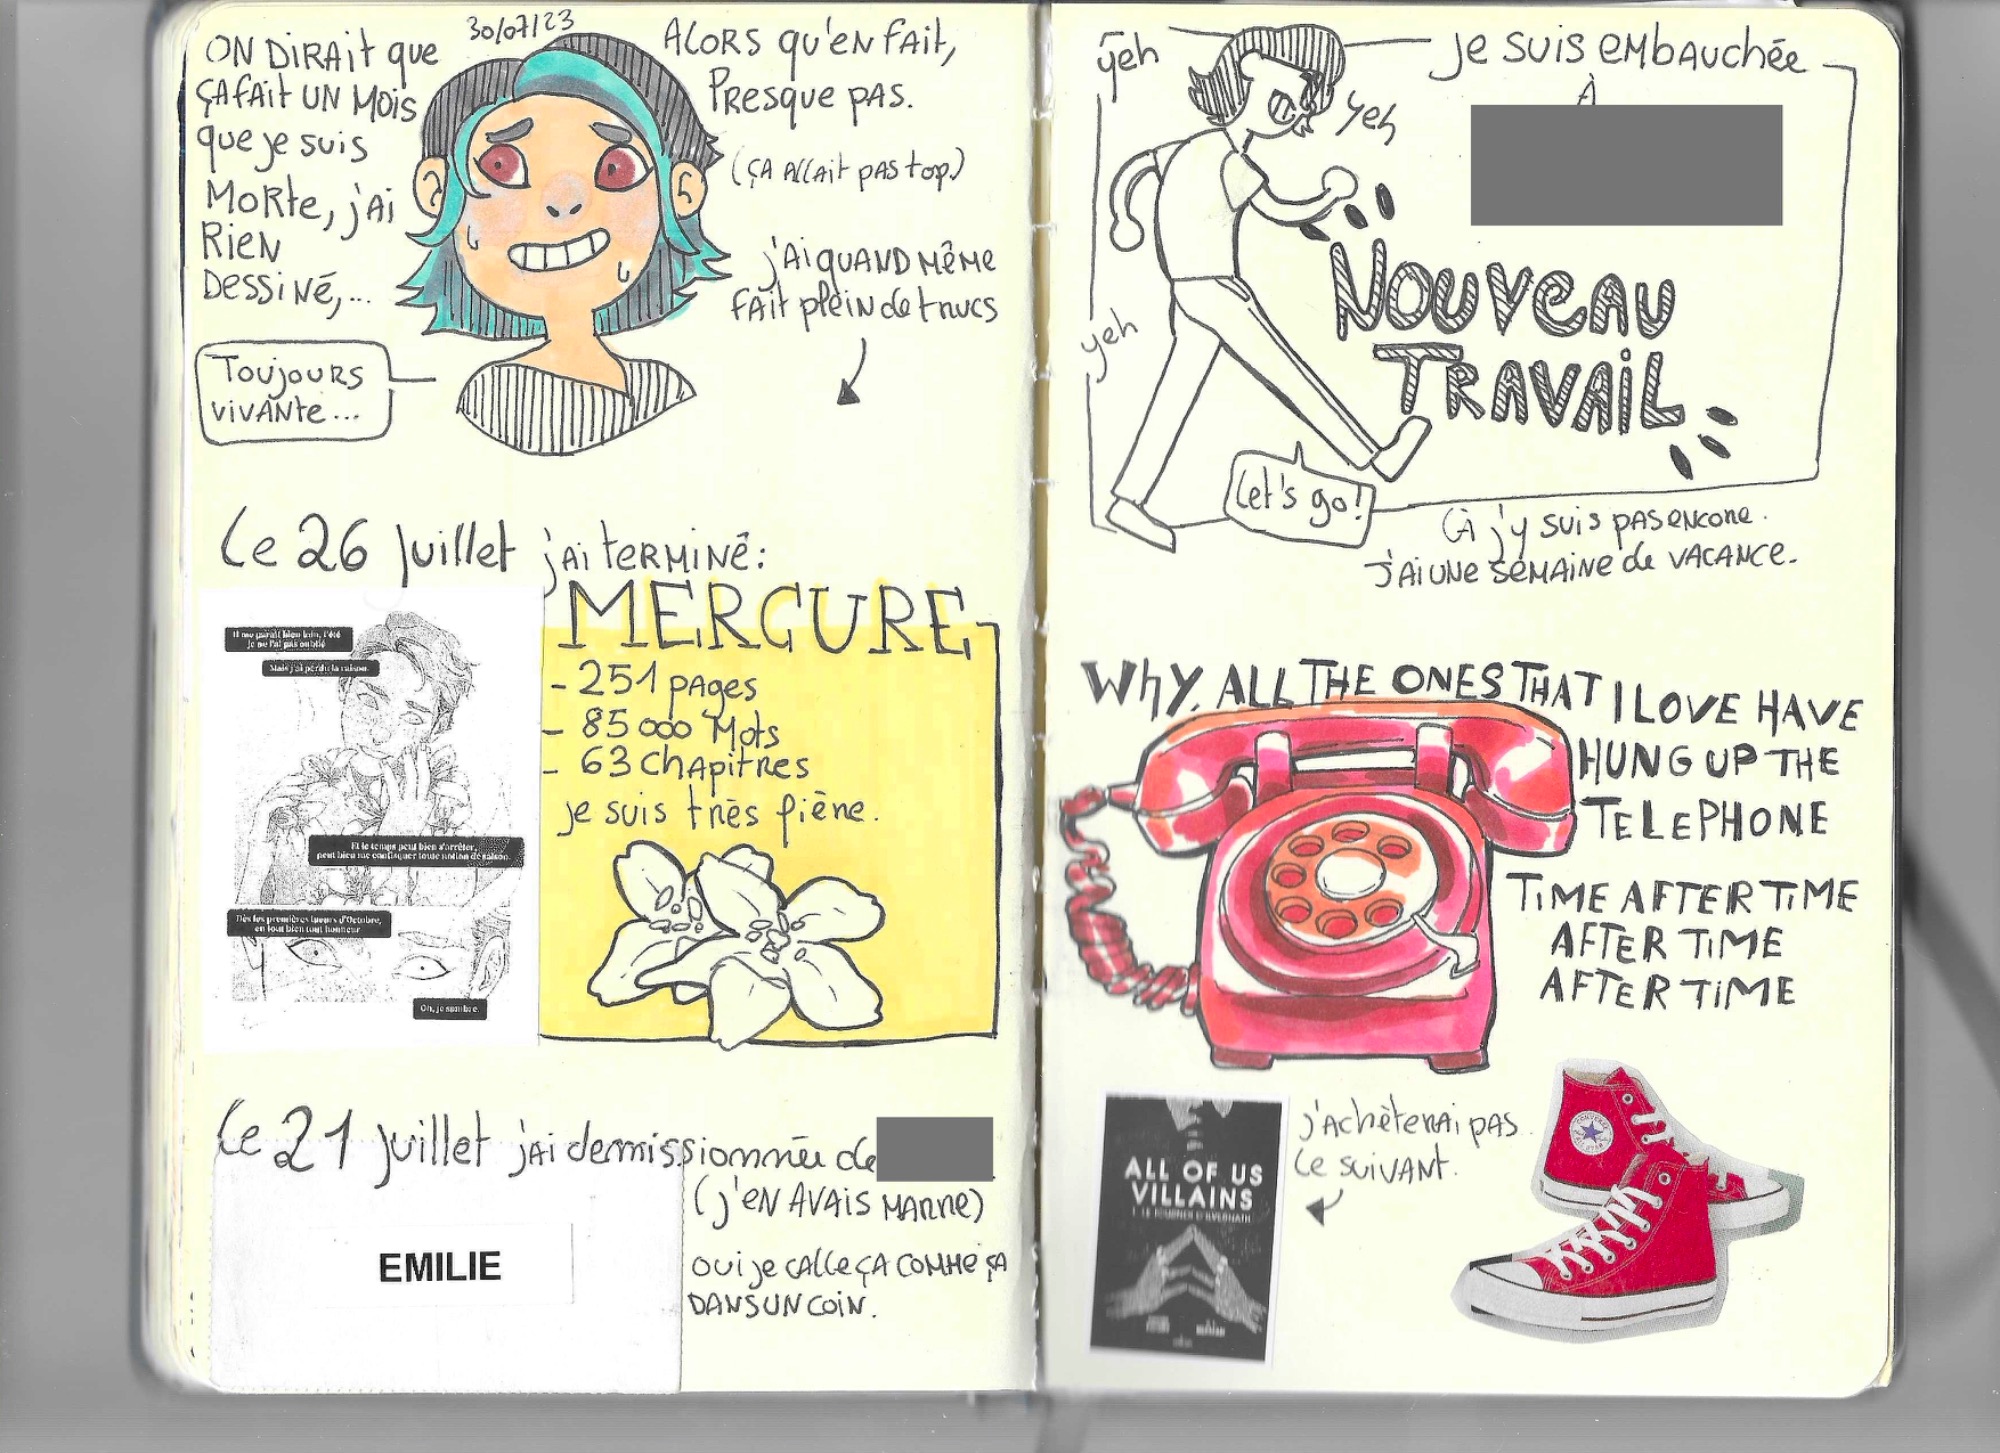 30/07/23
ON DIRAIT que
ÇA FAIT UN MOIS
que je suis
MORte, j'AI
RIEN
DESSINÉ,...
ALORS qu'EN FAIT,
PResque PAS.
(ÇA ALLAIT PAS top)
j'AI QUAND MÊME
FAIT plein de trucs
Toujours
vivANte...
Le 26 Juillet j'ai terminé:
MERCURE
- 251 pages
- 85 000 Mots
- 63 Chapitres
je suis très fière.
Il me paraît bien loin, l'été
je ne l'ai pas oublié
Mais j'ai perdu la raison.
Et le temps peut bien s'arrêter,
peut bien me confisquer toute notion de saison.
Dès les premières lueurs d'Octobre,
en tout bien tout honneur
Oh, je sombre.
Le 21 Juillet j'ai demissionnée de
(j'EN AVAIS MARRe)
EMILIE
oui je calle ÇA COMMe ÇA
DANS UN COIN.
yeh
yeh
yeh
Je suis embauchée
À
NOUVEAU
TRAVAIL
Let's go!
(À j'y suis pas encore.
J'AI UNE SEMAINE de VACANCE.
WhY, ALL THE ONES THAT I LOVE HAVE
HUNG UP THE
TELEPHONE
TIME AFTER TIME
AFTER TIME
AFTER TIME
ALL OF US
VILLAINS
j'achèterai pas
Le suivant.
CONVERSE